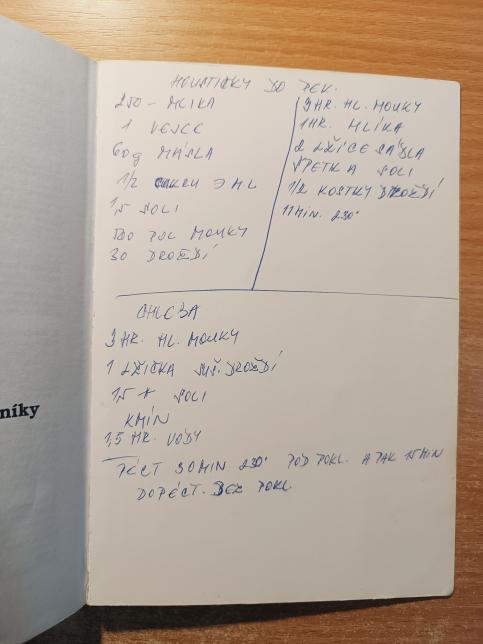 HOUSTIČKY DO PEK.
250 - MLIKA
1 VEJCE
60g MÁSLA
1/2 CUKRU
1,5 SOLI
500 POL MOUKY
30 DROŽDÍ
3 HR. HL. MOUKY
1 HR. MLÍKA
2 LŽÍCE SÁDLA
ŠPETKA SOLI
1/2 KOSTKY DROŽDÍ
11 MIN. 230°
CHLEBA
3 HR. HL. MOUKY
1 LŽIČKA SUŠ. DROŽDÍ
1,5 SOLI
KMÍN
1,5 HR. VODY
PÉCT 30 MIN 230° POD POKL. A PAK 15 MIN
DOPÉCT. BEZ POKL.
níky